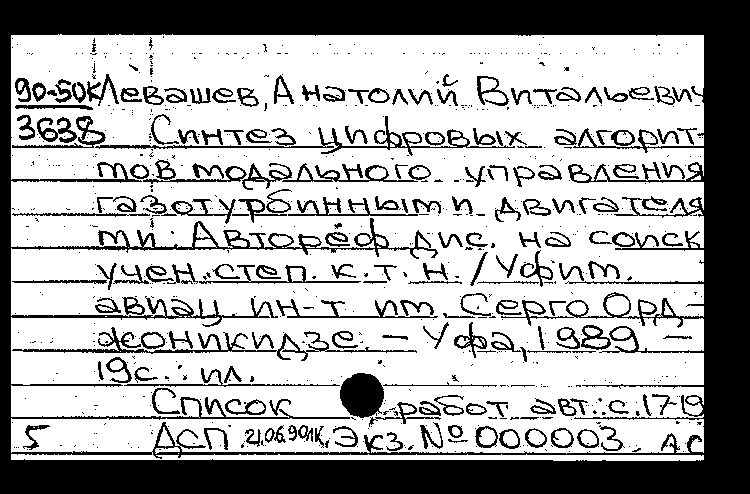 90-50К Левашев, Анатолий Витальевич
3638 Синтез цифровых алгорит-
мов модального управления
газотурбинными двигателя
ми: Автореф дис. на соиск
учен. степ. к. т. н. / Уфим.
авиац. ин-т им. Серго Орд-
жоникидзе. – Уфа, 1989. –
19с.: ил.
Список работ авт.: с.17-19
5 ДСП 21.06.90 Экз. № 000003. АС